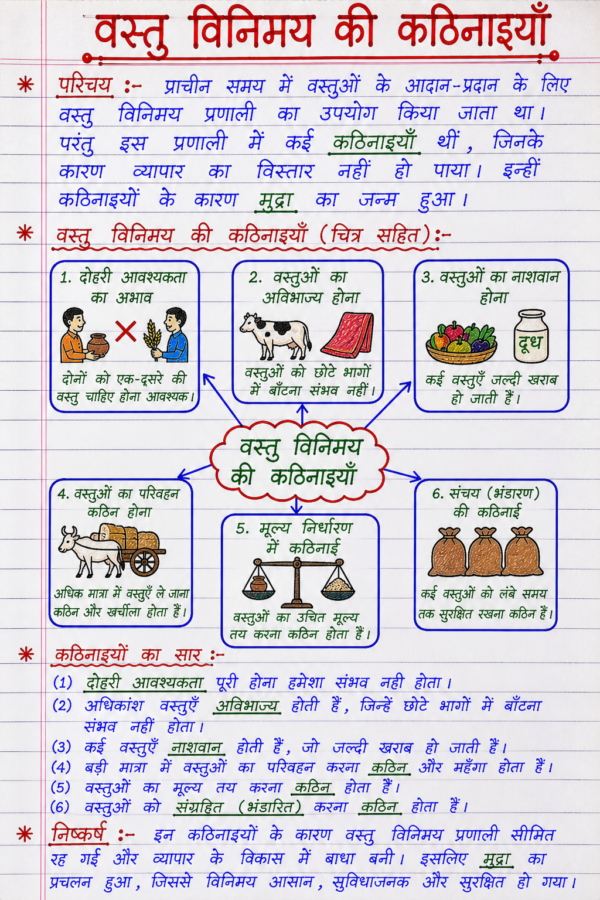 वस्तु विनिमय की कठिनाइयाँ
* परिचय :- प्राचीन समय में वस्तुओं के आदान-प्रदान के लिए
वस्तु विनिमय प्रणाली का उपयोग किया जाता था।
परंतु इस प्रणाली में कई कठिनाइयाँ थीं, जिनके
कारण व्यापार का विस्तार नहीं हो पाया। इन्हीं
कठिनाइयों के कारण मुद्रा का जन्म हुआ।
* वस्तु विनिमय की कठिनाइयाँ (चित्र सहित):-
1. दोहरी आवश्यकता
का अभाव
दोनों को एक-दूसरे की
वस्तु चाहिए होना आवश्यक।
2. वस्तुओं का
अविभाज्य होना
वस्तुओं को छोटे भागों
में बाँटना संभव नहीं।
3. वस्तुओं का नाशवान
होना
दूध
कई वस्तुएँ जल्दी खराब
हो जाती हैं।
वस्तु विनिमय
की कठिनाइयाँ
4. वस्तुओं का परिवहन
कठिन होना
अधिक मात्रा में वस्तुएँ ले जाना
कठिन और खर्चीला होता है।
5. मूल्य निर्धारण
में कठिनाई
वस्तुओं का उचित मूल्य
तय करना कठिन होता है।
6. संचय (भंडारण)
की कठिनाई
कई वस्तुओं को लंबे समय
तक सुरक्षित रखना कठिन है।
* कठिनाइयों का सार :-
(1) दोहरी आवश्यकता पूरी होना हमेशा संभव नही होता।
(2) अधिकांश वस्तुएँ अविभाज्य होती हैं, जिन्हें छोटे भागों में बाँटना
संभव नहीं होता।
(3) कई वस्तुएँ नाशवान होती हैं, जो जल्दी खराब हो जाती हैं।
(4) बड़ी मात्रा में वस्तुओं का परिवहन करना कठिन और महँगा होता है।
(5) वस्तुओं का मूल्य तय करना कठिन होता है।
(6) वस्तुओं को संग्रहित (भंडारित) करना कठिन होता है।
* निष्कर्ष :- इन कठिनाइयों के कारण वस्तु विनिमय प्रणाली सीमित
रह गई और व्यापार के विकास में बाधा बनी। इसलिए मुद्रा का
प्रचलन हुआ, जिससे विनिमय आसान, सुविधाजनक और सुरक्षित हो गया।